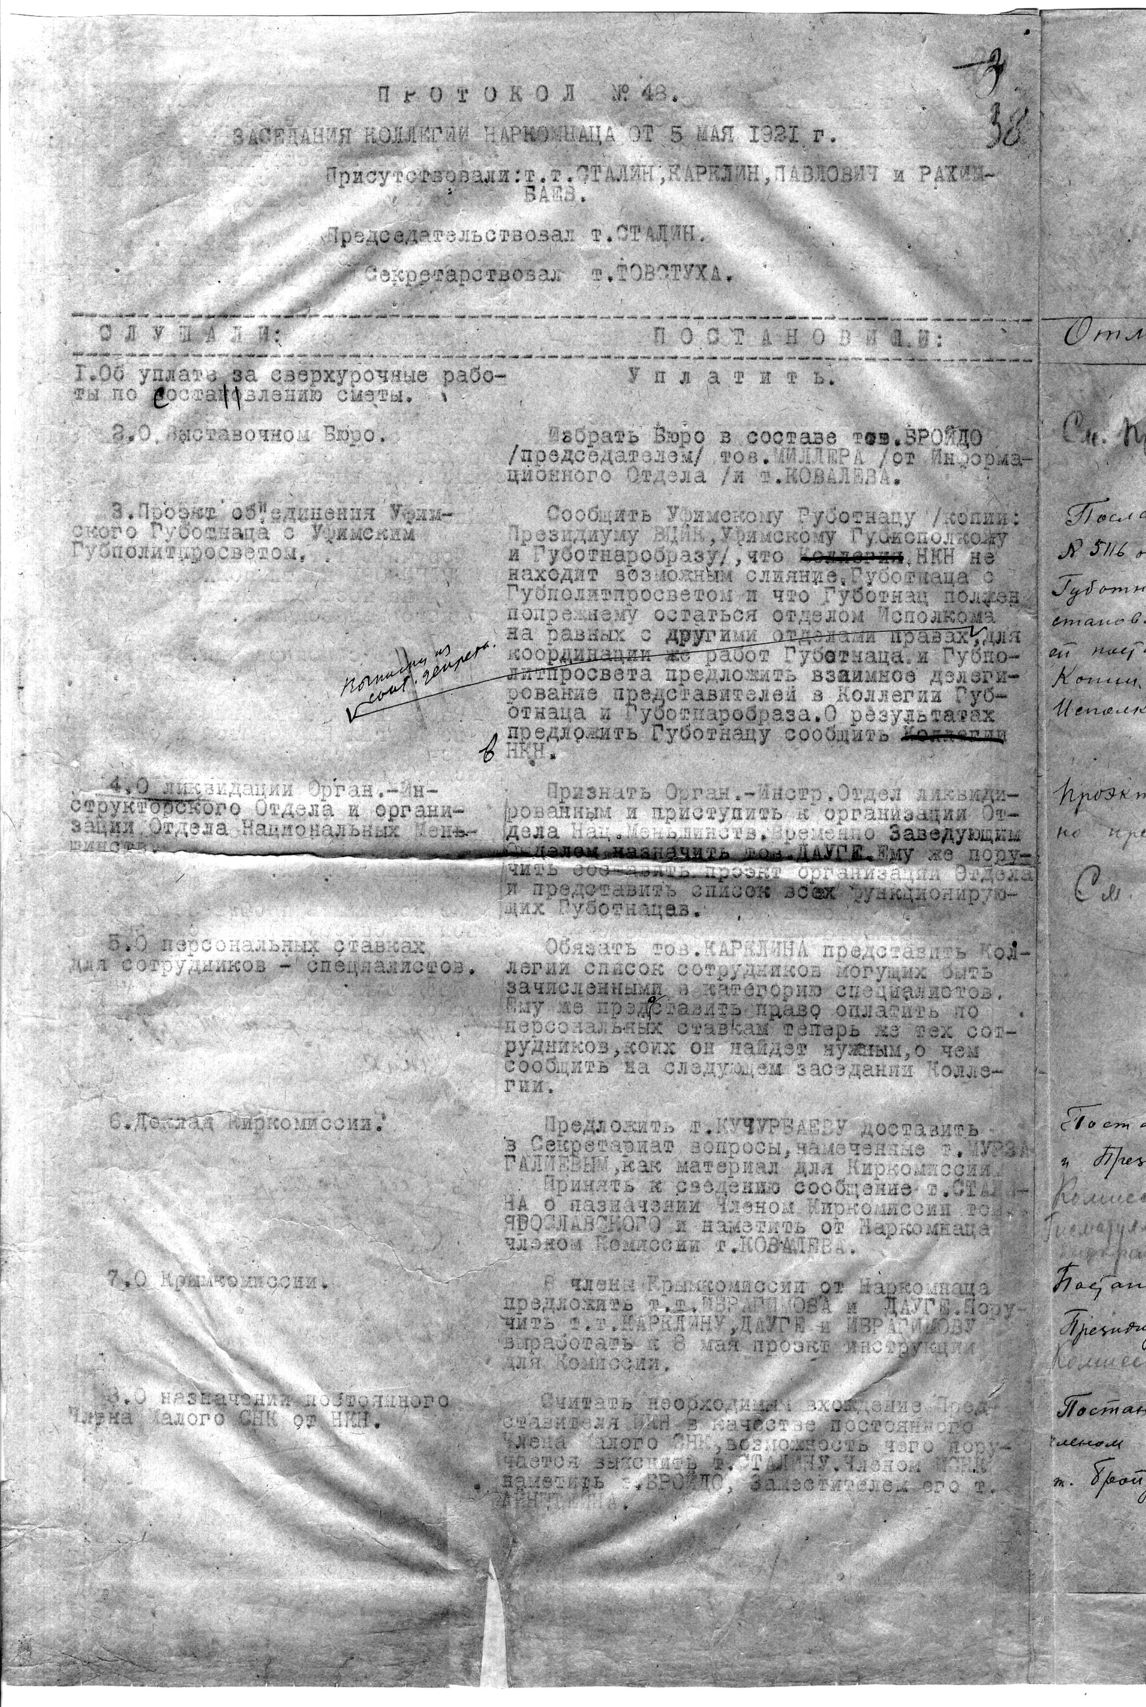 3
38
ПРОТОКОЛ № 48.
ЗАСЕДАНИЯ КОЛЛЕГИИ НАРКОМНАЦА ОТ 5 МАЯ 1921 г.
Присутствовали:т.т.СТАЛИН,КАРКЛИН,ПАВЛОВИЧ и РАХИМ-
БАЕВ.
Председательствовал т.СТАЛИН.
Секретарствовал т.ТОВСТУХА.
СЛУШАЛИ:
1.Об уплате за сверхурочные рабо-
ты по составлению сметы.
2.О Выставочном Бюро.
3.Проэкт об"единения Уфим-
ского Губотнаца с Уфимским
Губполитпросветом.
4.О ликвидации Орган.-Ин-
структорского Отдела и органи-
зация Отдела Национальных Мень-
шинств.
5.О персональных ставках
для сотрудников - специалистов.
6.Доклад Киркомиссии.
7.О Крымкомиссии.
8.О назначении постоянного
Члена Малого СНК от НКН.
ПОСТАНОВИЛИ:
Уплатить.
Избрать Бюро в составе тов.БРОЙДО
/председателем/ тов.МИЛЛЕРА /от Информа-
ционного Отдела /и т.КОВАЛЕВА.
Сообщить Уфимскому Губотнацу /копии:
Президиуму ВЦИК,Уфимскому Губисполкому
и Губотнаробразу/,что Коллегия НКН не
находит возможным слияние Губотнаца с
Губполитпросветом и что Губотнац должен
попрежнему остаться отделом Исполкома
на равных с другими отделами правах,для
координации же работ Губотнаца и Губпо-
литпросвета предложить взаимное делеги-
рование представителей в Коллегии Губ-
отнаца и Губотнаробраза.О результатах
предложить Губотнацу сообщить Коллегии
в НКН.
Признать Орган.-Инстр.Отдел ликвиди-
рованным и приступить к организации От-
дела Нац.Меньшинств.Временно Заведующим
Отделом назначить тов.ДАУГЕ.Ему же пору-
чить составить проэкт организации Отдела
и представить список всех функционирую-
щих Губотнацев.
Обязать тов.КАРКЛИНА представить Кол-
легии список сотрудников могущих быть
зачисленными в категорию специалистов.
Ему же представить право оплатить по
персональных ставкам теперь же тех сот-
рудников,коих он найдет нужным,о чем
сообщить на следующем заседании Колле-
гии.
Предложить т.КУЧУРБАЕВУ доставить
в Секретариат вопросы,намеченные т.МУРЗА
ГАЛИЕВЫМ,как материал для Киркомиссии.
Принять к сведению сообщение т.СТАЛИ-
НА о назначении Членом Киркомиссии тов.
ЯРОСЛАВСКОГО и наметить от Наркомнаца
членом Комиссии т.КОВАЛЕВА.
В члены Крымкомиссии от Наркомнаца
предложить т.т.ИБРАГИМОВА и ДАУГЕ.Пору-
чить т.т.КАРКЛИНУ,ДАУГЕ и ИБРАГИМОВУ
выработать к 8 мая проэкт инструкции
для Комиссии.
Считать необходимым вхождение Пред-
ставителя НКН в качестве постоянного
Члена Малого СНК,возможность чего пору-
чается выяснить т.СТАЛИНУ.Членом
наметить т.БРОЙДО, Заместителем его т.
Отм
См. пр
Посла
№ 5116 о
Губотн
станов
Копии
Исполк
проэкт
но пре
См.
Пост
и През
Комисс
Постан
Президиу
Комисс
Постан
членом
т. Брой